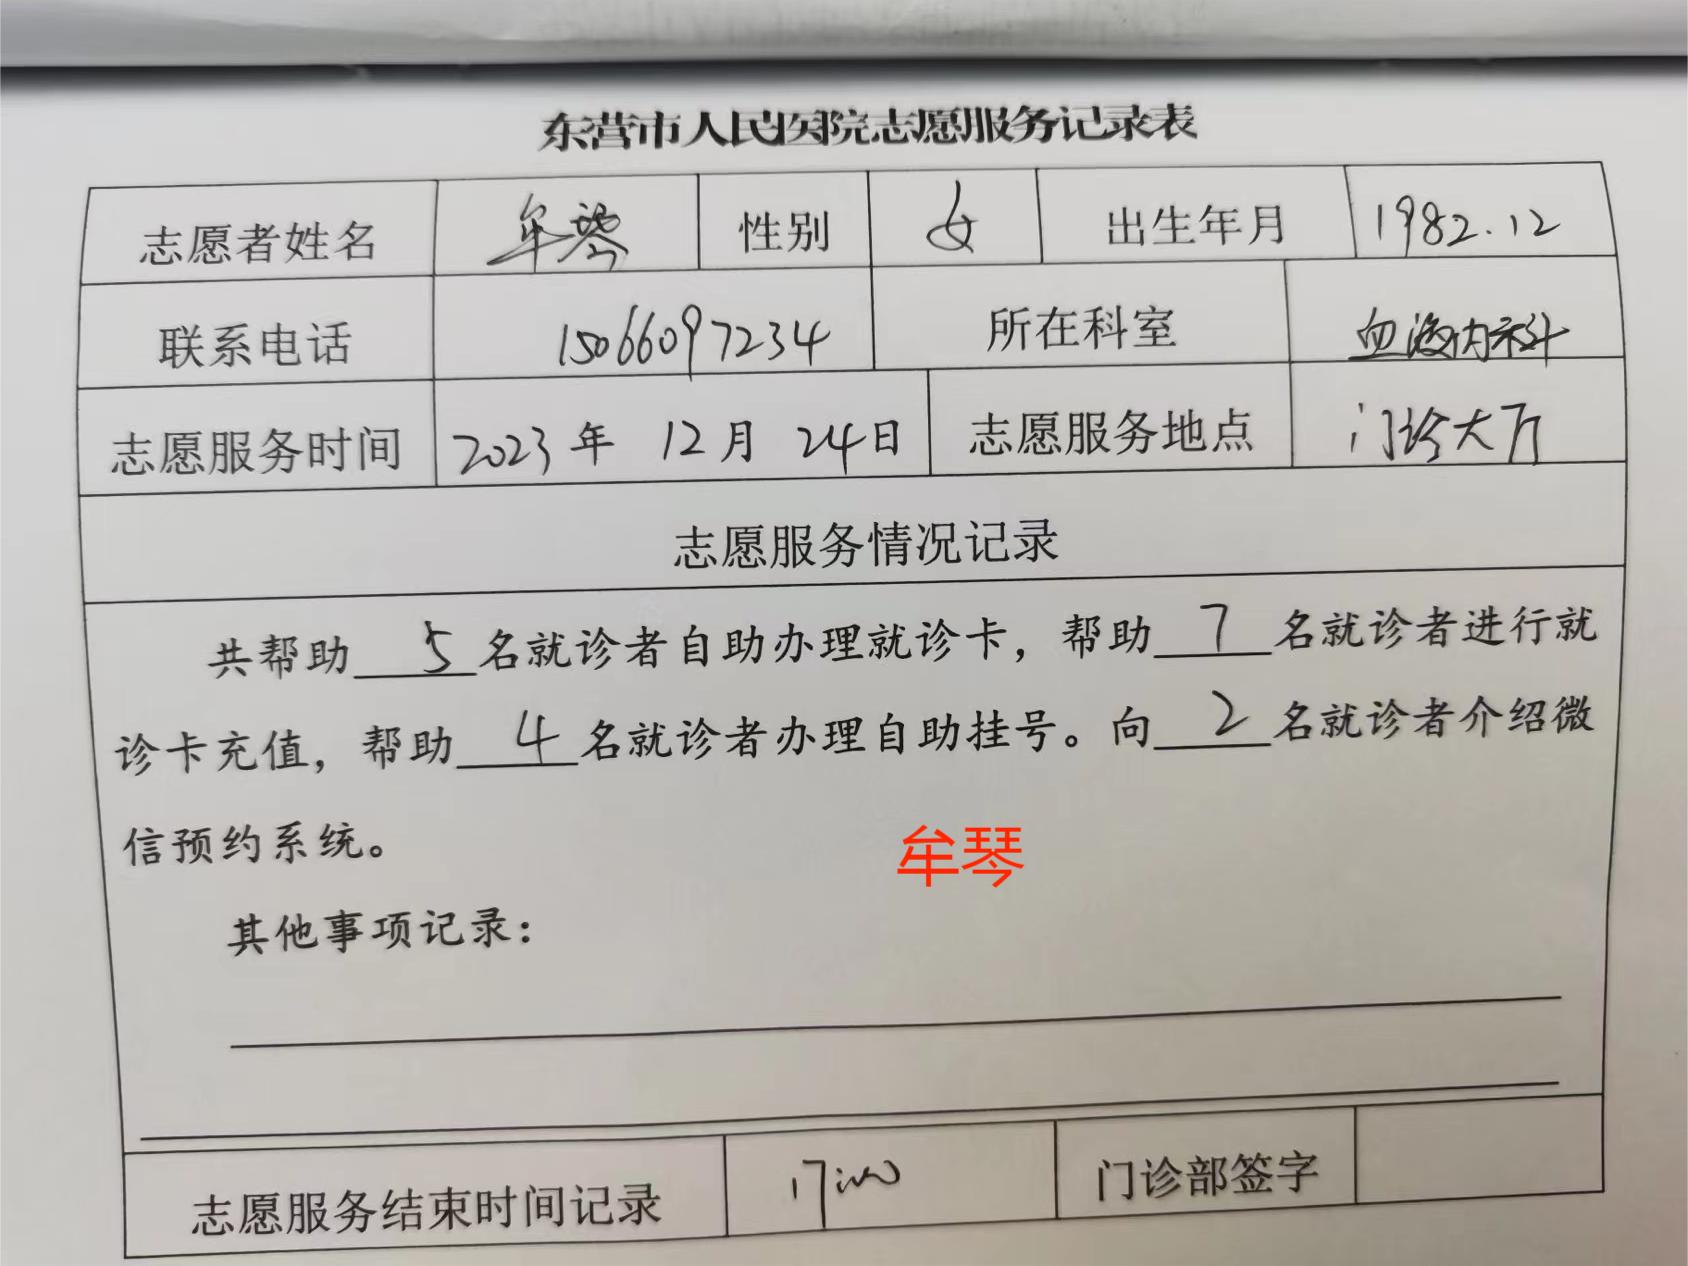 东营市人民医院志愿服务记录表
志愿者姓名 牟琴 性别 女 出生年月 1982.12
联系电话 15066097234 所在科室 血液内科
志愿服务时间 2023年 12月 24日 志愿服务地点 门诊大厅
志愿服务情况记录
共帮助 5 名就诊者自助办理就诊卡，帮助 7 名就诊者进行就
诊卡充值，帮助 4 名就诊者办理自助挂号。向 2 名就诊者介绍微
信预约系统。
牟琴
其他事项记录：
志愿服务结束时间记录 17:00 门诊部签字